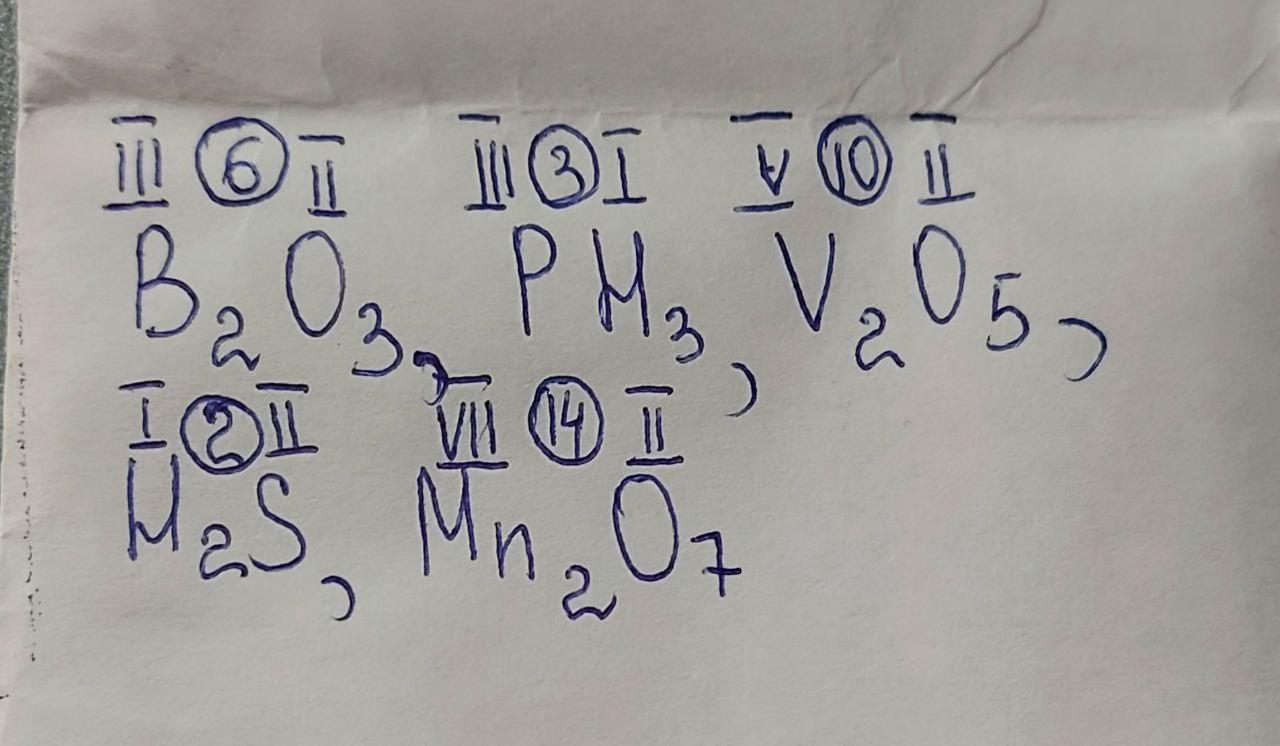 III 6 II III 3 I V 10 II
B2O3, PH3, V2O5,
I 2 II VII 14 II
H2S, Mn2O7